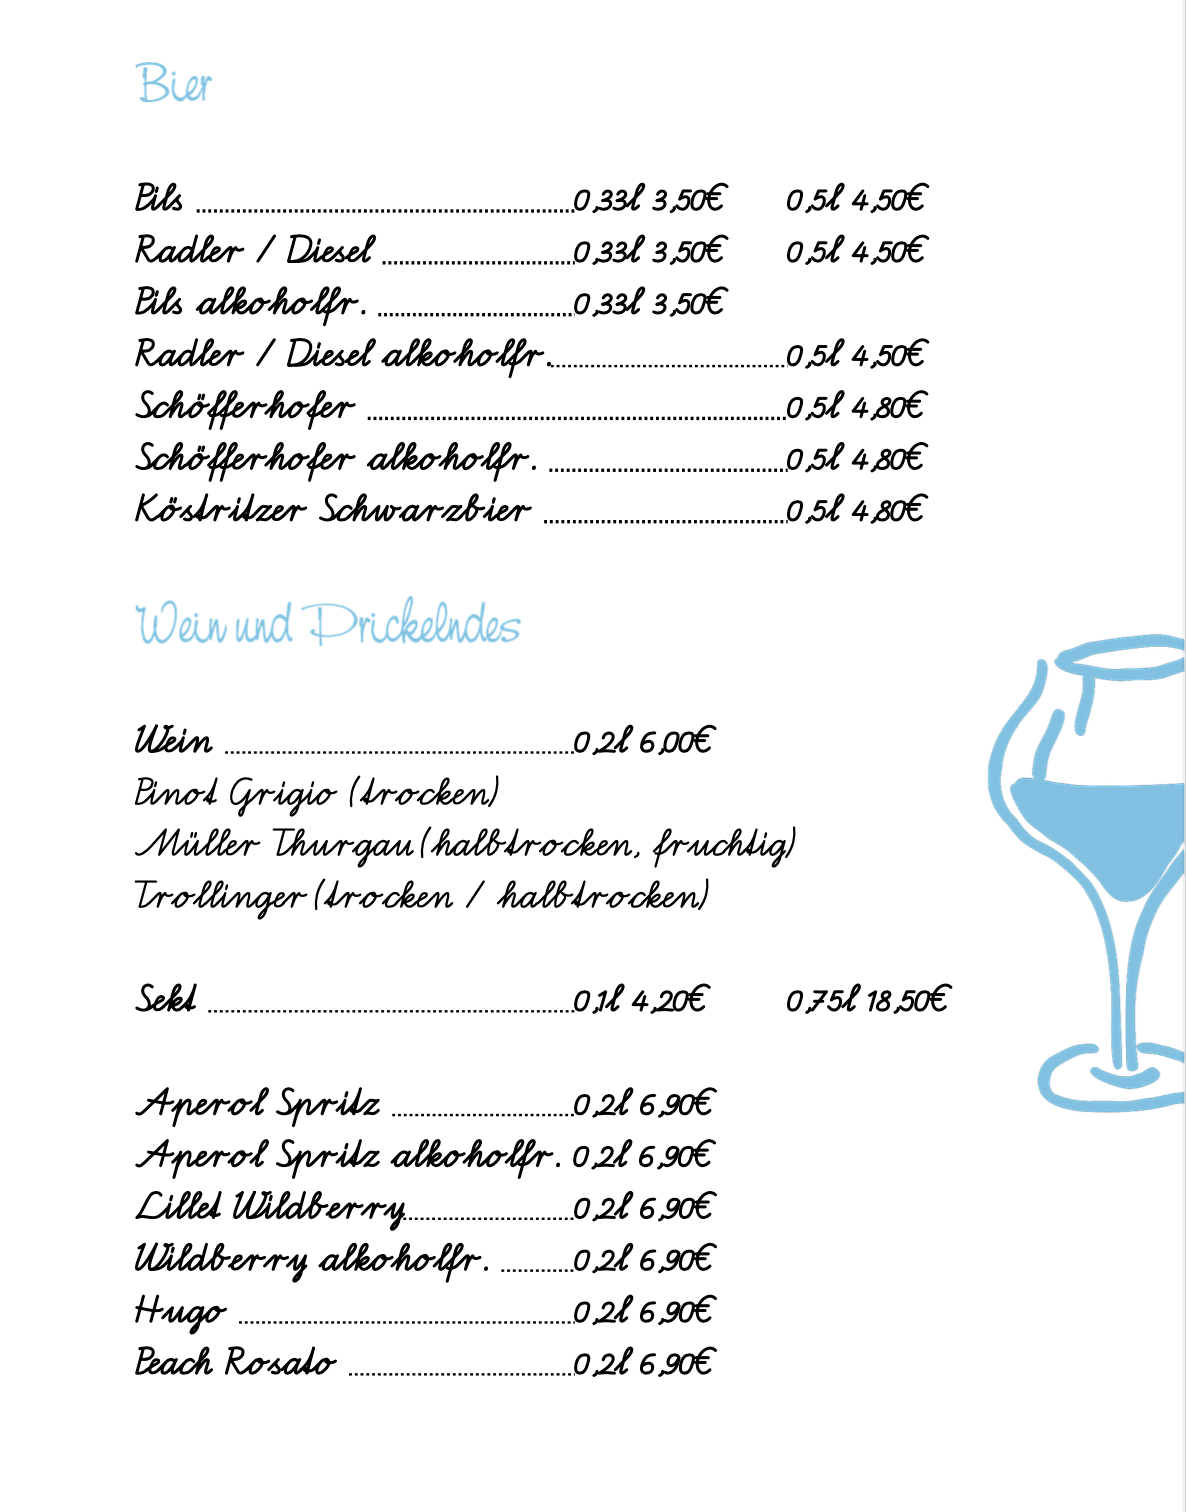 Bier
Pils ........................................0,33l 3,50€ 0,5l 4,50€
Radler / Diesel ........................................0,33l 3,50€ 0,5l 4,50€
Pils alkoholfr. ........................................0,33l 3,50€
Radler / Diesel alkoholfr.........................................0,5l 4,50€
Schöfferhofer ........................................0,5l 4,80€
Schöfferhofer alkoholfr. ........................................0,5l 4,80€
Köstritzer Schwarzbier ........................................0,5l 4,80€
Wein und Prickelndes
Wein ........................................0,2l 6,00€
Pinot Grigio (trocken)
Müller Thurgau(halbtrocken, fruchtig)
Trollinger(trocken / halbtrocken)
Sekt ........................................0,1l 4,20€ 0,75l 18,50€
Aperol Spritz ........................................0,2l 6,90€
Aperol Spritz alkoholfr. 0,2l 6,90€
Lillet Wildberry........................................0,2l 6,90€
Wildberry alkoholfr. ....................0,2l 6,90€
Hugo ........................................0,2l 6,90€
Peach Rosato ........................................0,2l 6,90€